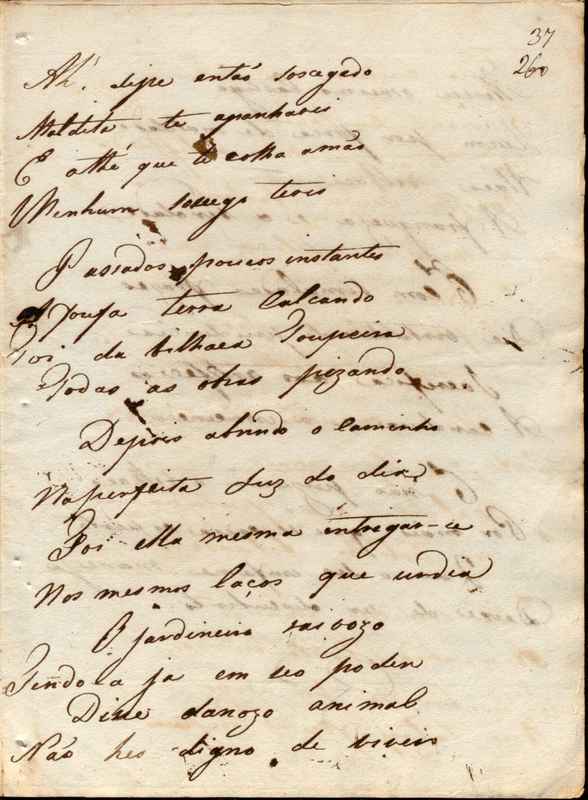 37
260
Ah! dise entaõ socegado
Maldita te apanharei
E athé que te colha a maõ
Nenhum socego terei
Passados poucos instantes
A foufa terra calcando
Foi da bilhaca Toupeira
Todas as obras pizando
Depois abrindo o caminho
Na perfeita Luz do dia
Foi ella mesma entregar-se
Nos mesmos laços que urdia
O jardineiro raivozo
Tendo a ja em seo poder
Disse danozo animal
Não hes digno de viver